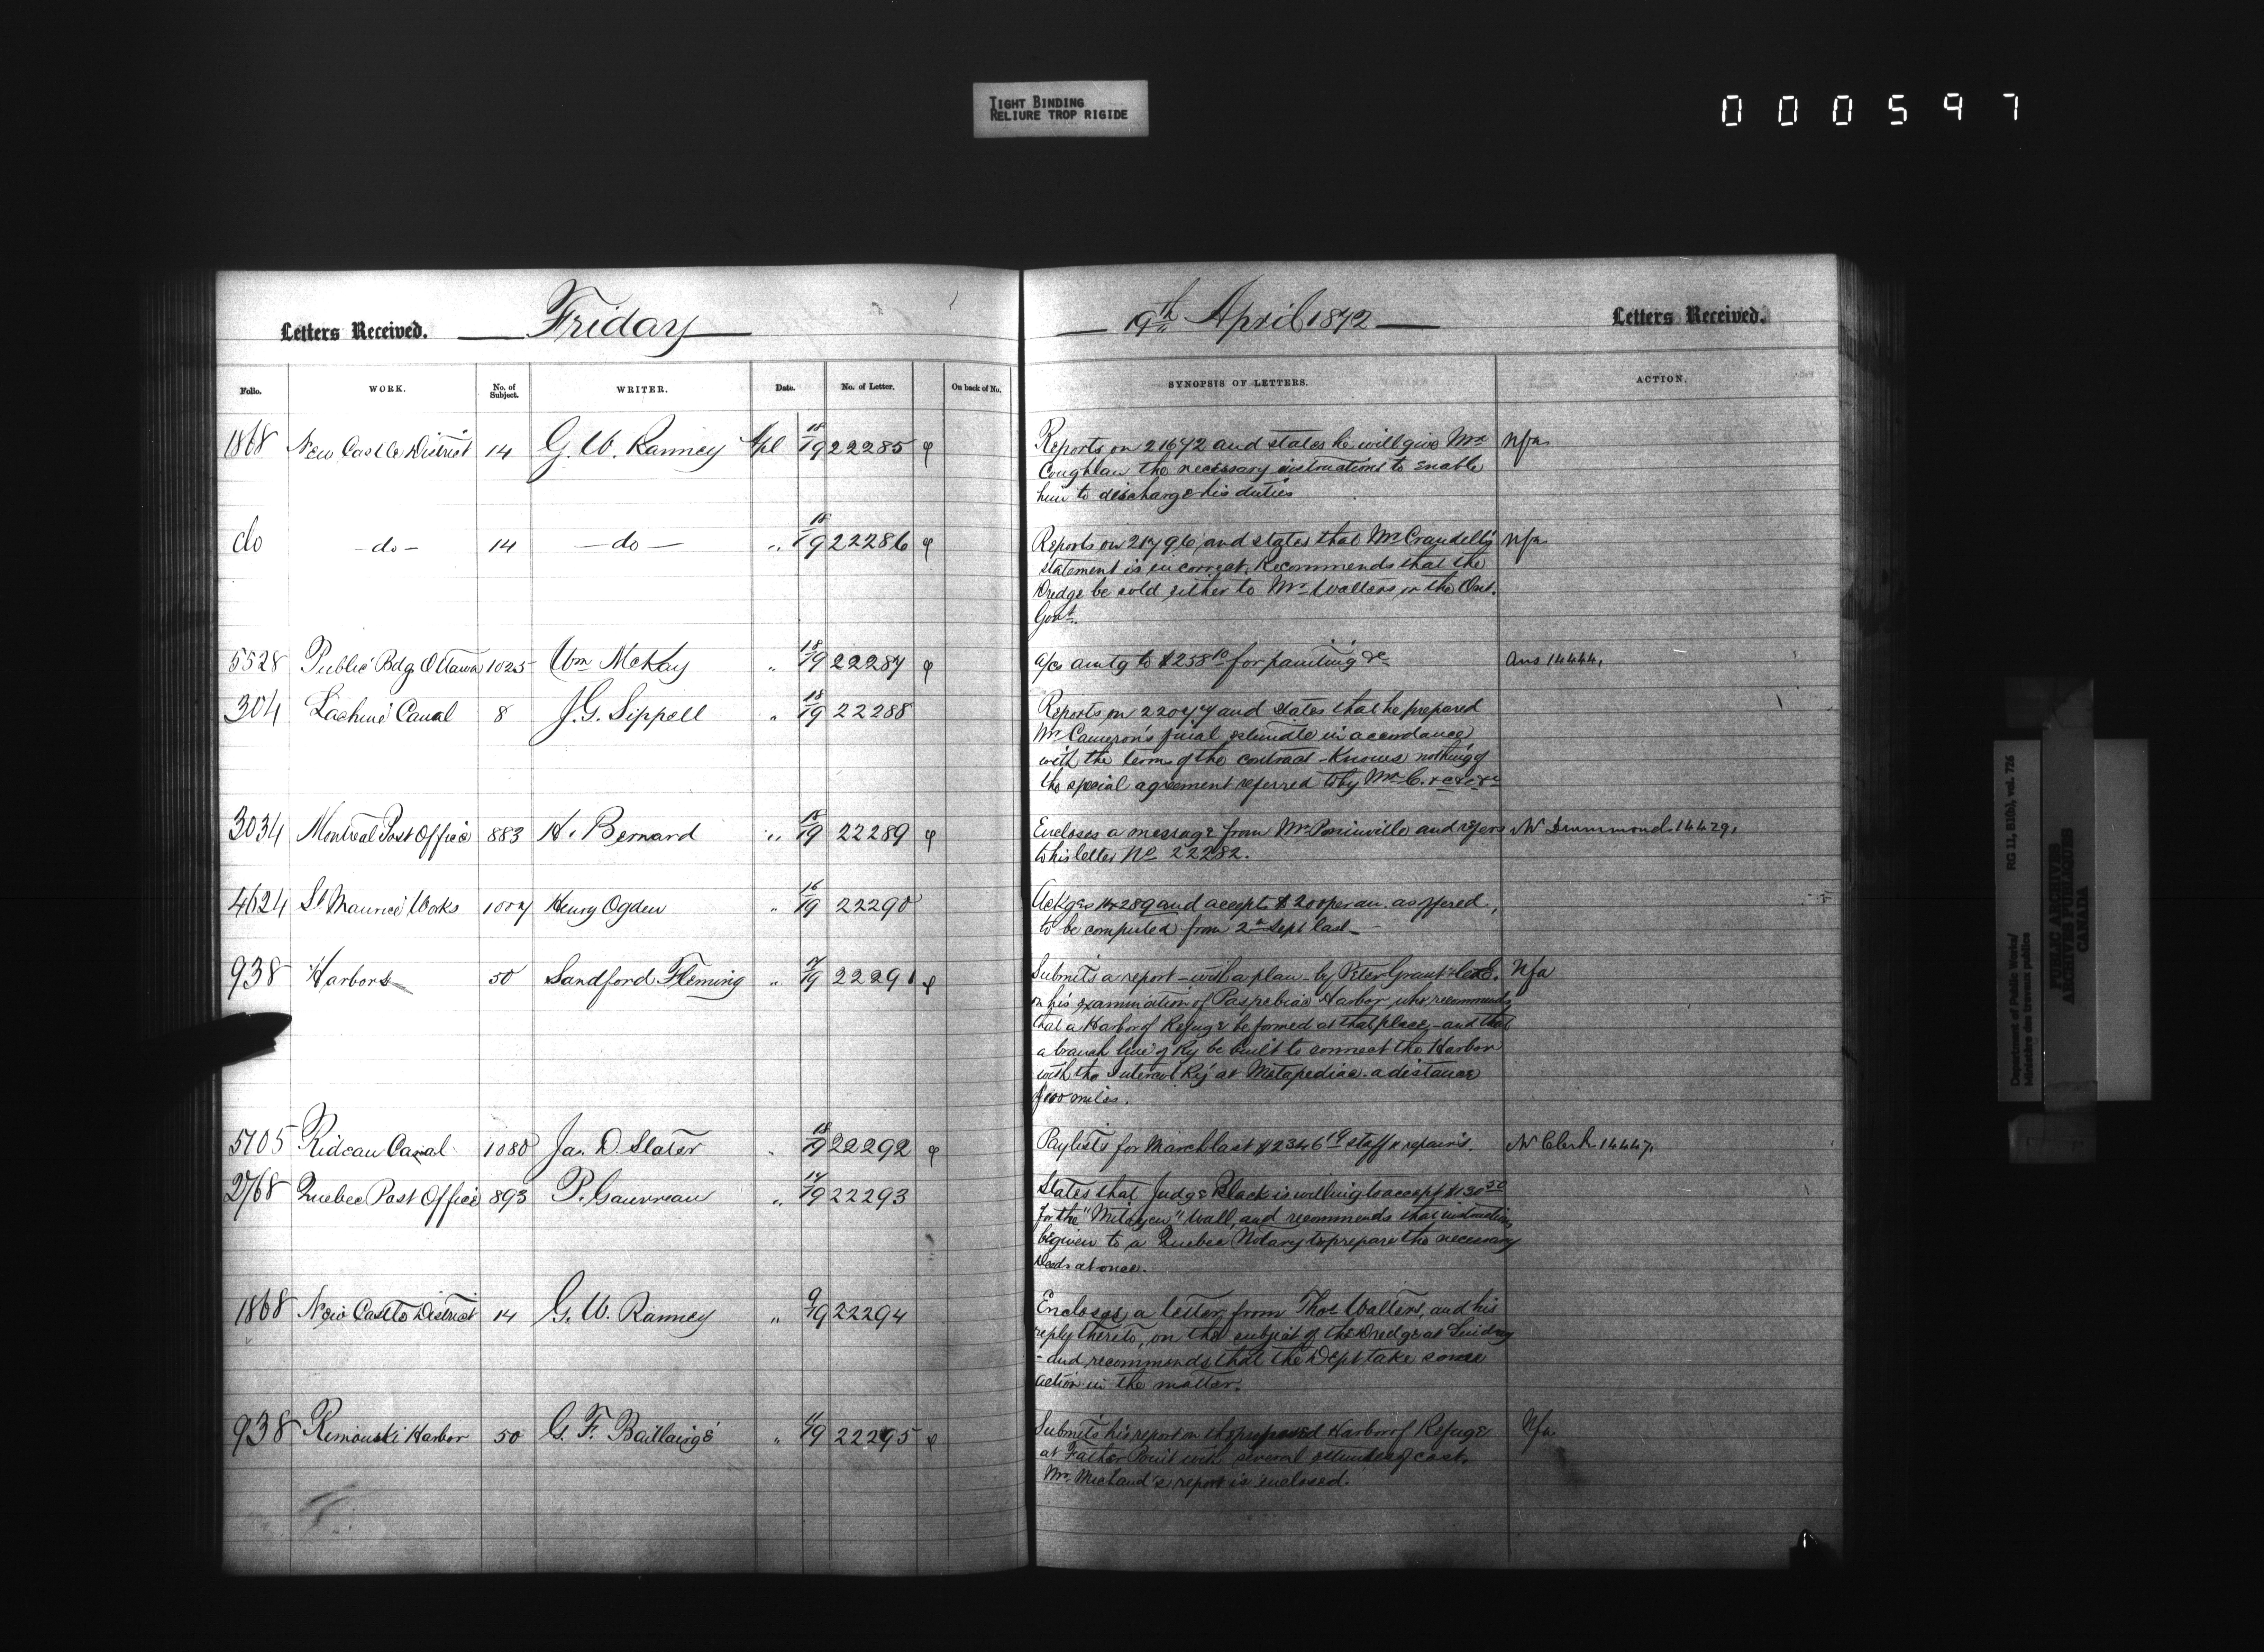 TIGHT BINDING
RELIURE TROP RIGIDE
000597
Letters Received. Friday
19th April 1872 Letters Received.
Folio. WORK. No. of Subject. WRITER. Date. No. of Letter. On back of No.
SYNOPSIS OF LETTERS. ACTION.
1868 New Castle District 14 G. W. Ranney Apl 18/19 22285
Reports on 21672 and states he will give Mr Nfa
Coughlan the necessary instructions to enable
him to discharge his duties
do -do- 14 -do- " 18/19 22286
Reports on 21796 and states that Mr Crandell's Nfa
statement is incorrect. Recommends that the
Dredge be sold either to Mr Walters or the Ont.
Govt.
5528 Public Bdgs Ottawa 1025 Wm McKay " 18/19 22287
a/cs amtg to $258 10 for painting &c Ans 14444.
304 Lachine Canal 8 J. G. Sippell " 18/19 22288
Reports on 22077 and states that he prepared
Mr Cameron's final estimate in accordance
with the terms of the contract - Knows nothing of
the special agreement referred to by Mr C. &c &c &c
3034 Montreal Post Office 883 H. Bernard " 18/19 22289
Encloses a message from Mr Poninville and refers W Drummond 14429.
to his letter No 22282.
4624 St Maurice Works 1007 Henry Ogden " 16/19 22290
Ackges 14289 and accepts $200 per an. as offered,
to be computed from 2nd Sept last -
938 Harbors 50 Sandford Fleming " 17/19 22291
Submits a report - with a plan - by Peter Grant C.E. Nfa
on his examination of Paspebiac Harbor who recommends
that a Harbor of Refuge be formed at that place, - and that
a branch line of Ry be built to connect the Harbor
with the Intercol Ry at Metapediac. a distance
of 100 miles.
5105 Rideau Canal 1080 Jas. D. Slater " 18/19 22292
Paylists for March last $2346 19 staff & repairs. W Clerk 14447.
2768 Quebec Post Office 893 P. Gauvreau " 17/19 22293
States that Judge Black is willing to accept $130 50
for the "Mitoyen" Wall, and recommends that instructions
be given to a Quebec Notary to prepare the necessary
Deeds at once.
1868 New Castle District 14 G. W. Ranney " 9/19 22294
Encloses a letter from Thos Walters, and his
reply thereto, on the subject of the Dredge at Lindsay
- and recommends that the Dept take some
action in the matter.
938 Rimouski Harbor 50 G. F. Baillairgé " 4/19 22295
Submits his report on the proposed Harbor of Refuge Nfa
at Father Point with several estimates of cost.
Mr Michaud's report is enclosed.
Department of Public Works/ RG 11, B1(b), vol. 726
Ministère des travaux publics
PUBLIC ARCHIVES
ARCHIVES PUBLIQUES
CANADA